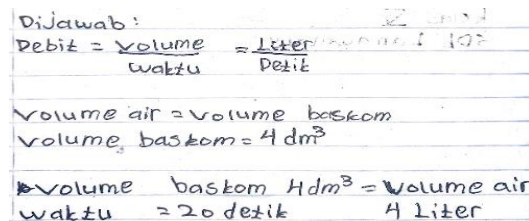 Dijawab:
Debit = Volume = Liter
waktu Detik
Volume air = volume baskom
volume baskom = 4 dm³
volume baskom 4dm³ = Volume air
waktu = 20 detik 4 Liter